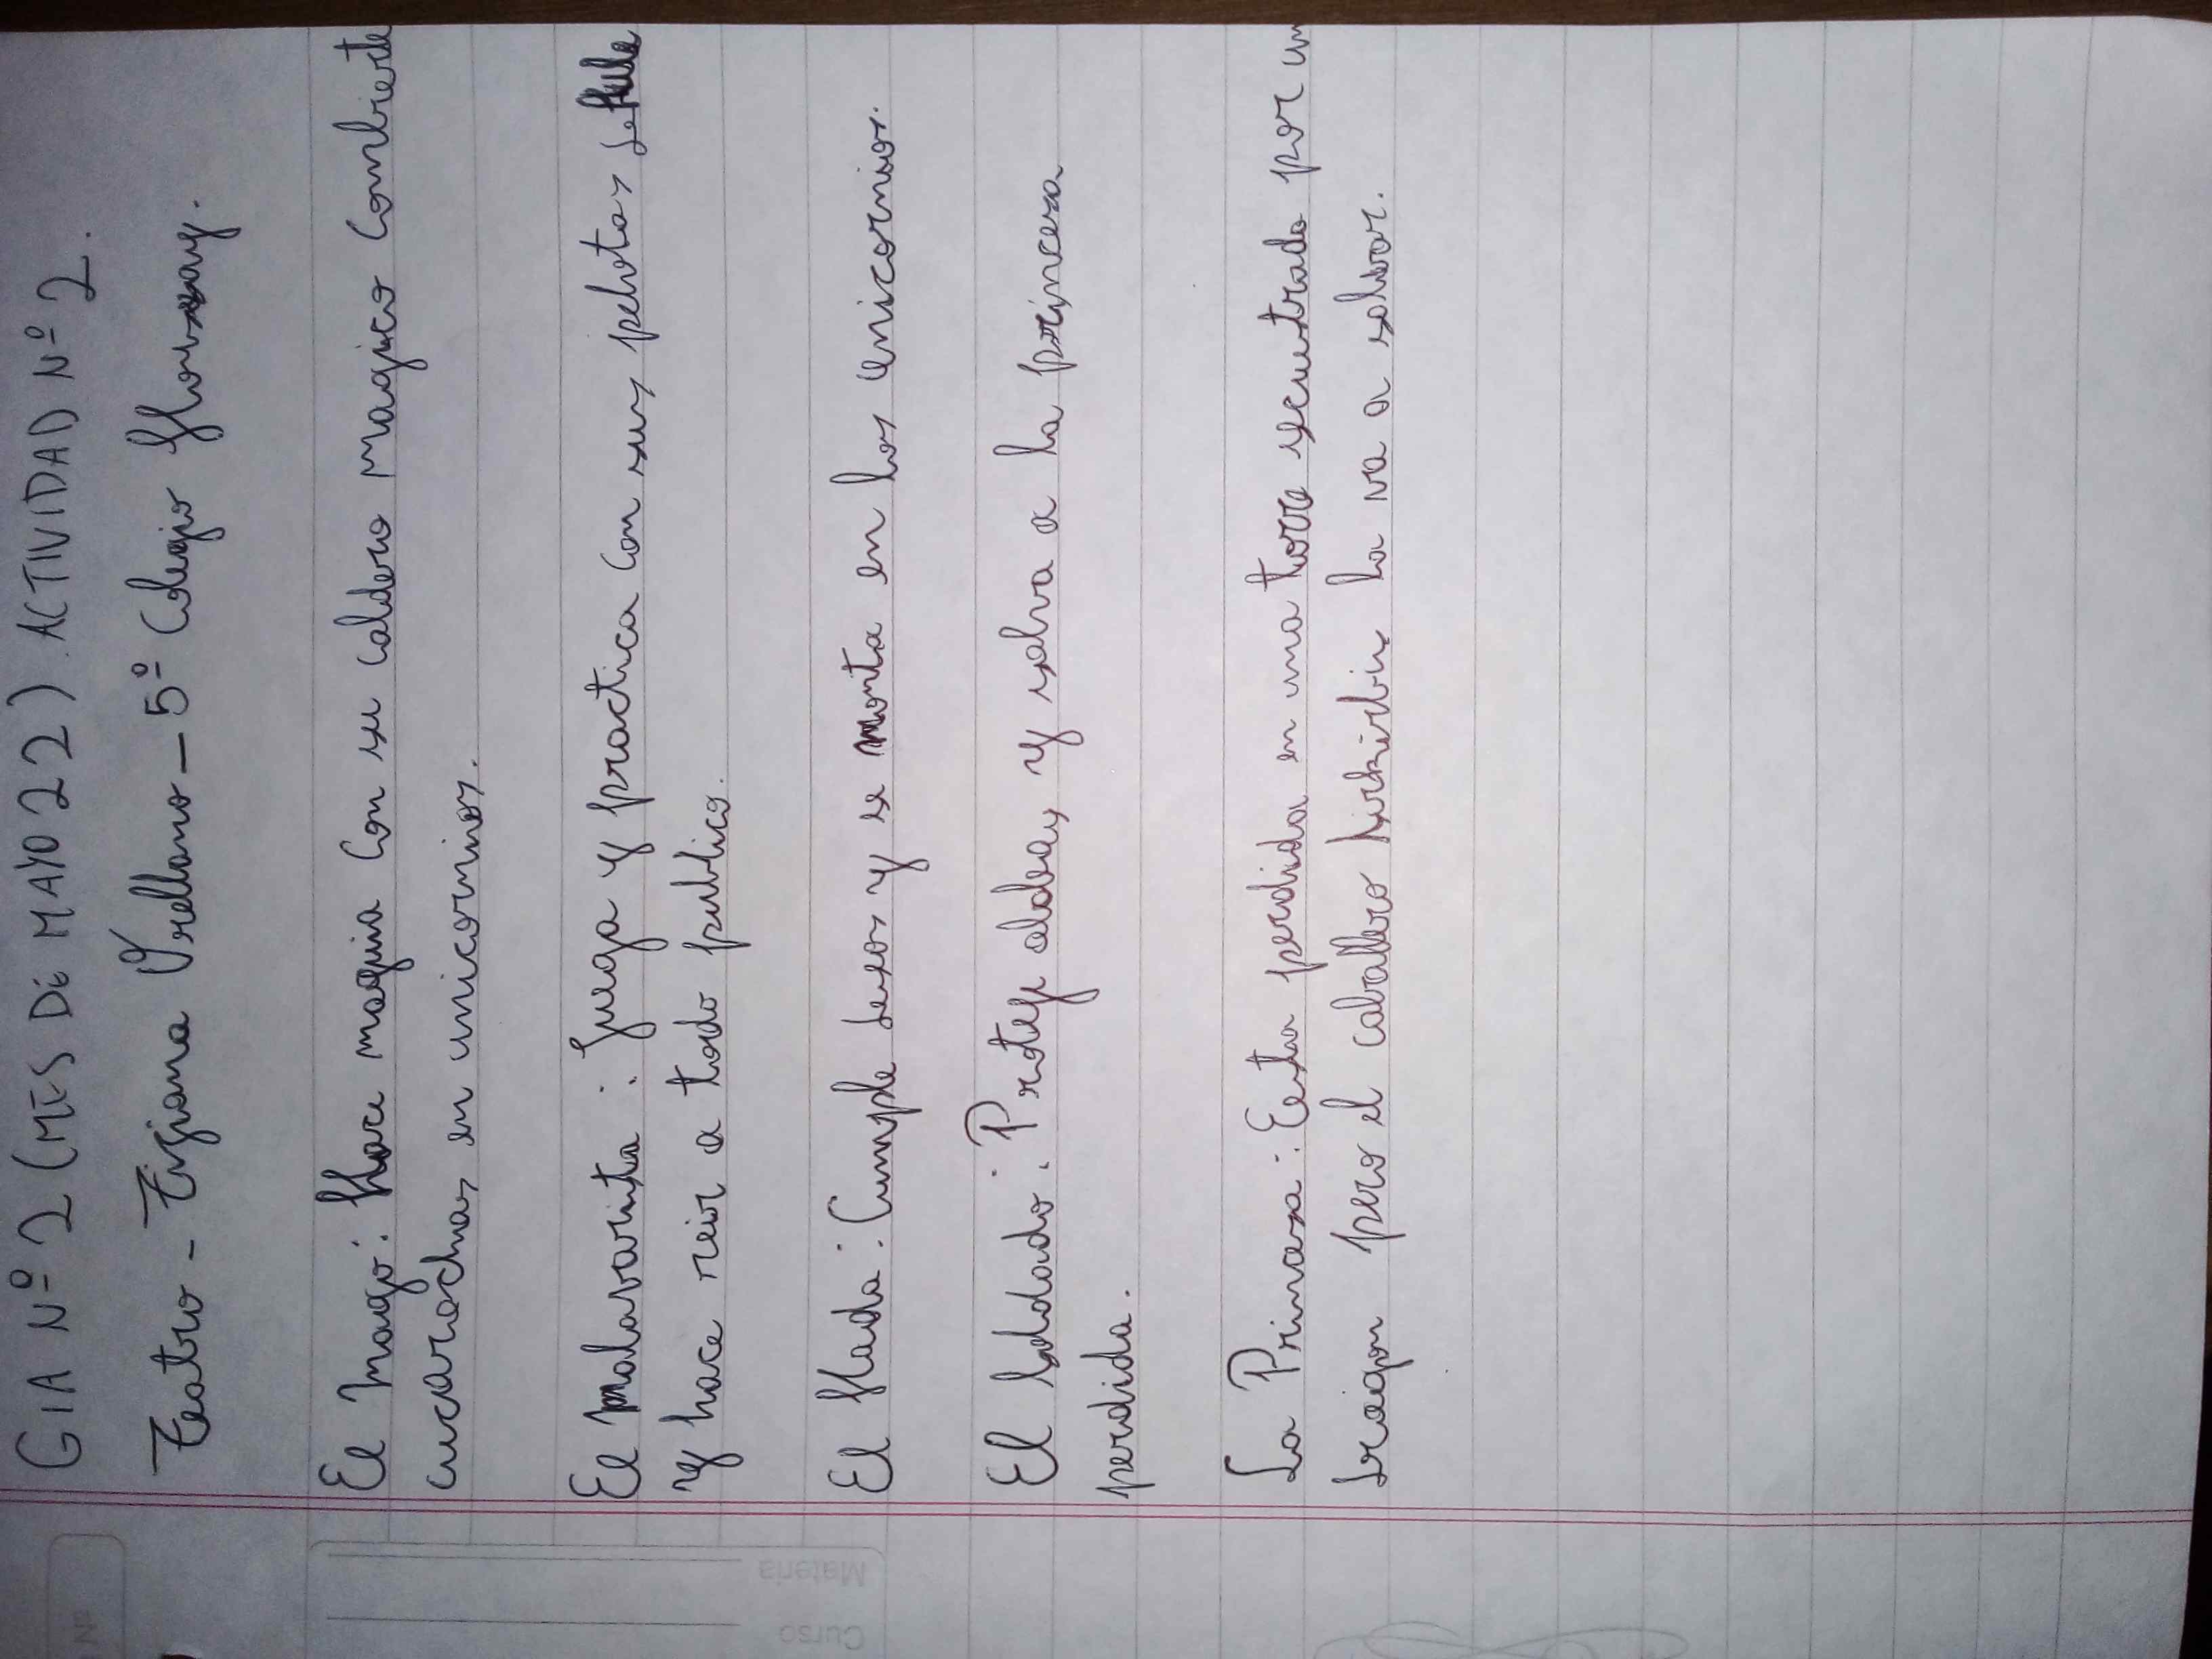 GIA Nº 2 (MES DE MAYO 22). ACTIVIDAD Nº 2.
Teatro - Tiziana Orellano - 5º Colegio
El Mago: Hace magia Con su caldero magico Combierte
cucarachas en unicornios.
El malavarista: Juega y practica con sus pelotas
y hace reir a todo publico.
El Hada: Cumple deseos y se monta en los unicornios.
El Soldado: Proteje aldeas y salva a la princesa
perdida.
La Princesa: Esta perdida en una torre secuestrada por un
dragon pero el caballero la va a salvar.
Materia
Curso
Nº